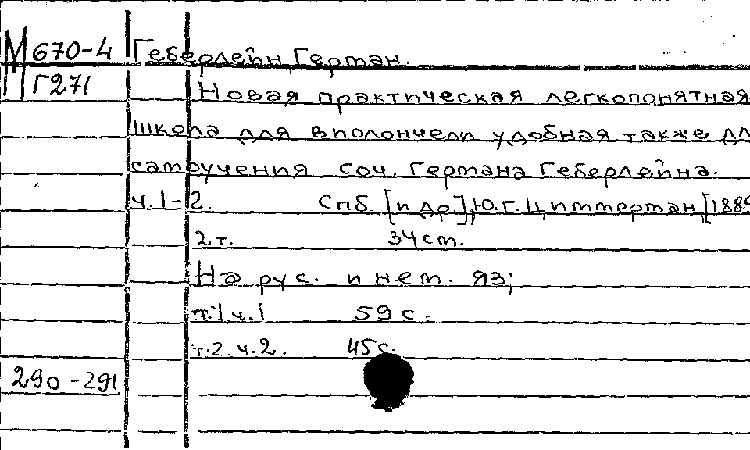 М 670-4 Геберлейн Герман.
Г271 Новая практическая легкопонятная
школа для виолончели удобная также дл
самоучения соч. Германа Геберлейна.
ч. 1-2. Спб. [и др.], Ю.Г. Циммерман, [1889
2 т. 34 cm.
На рус. и нем. яз;
т.1 ч.1 59 с.
т.2. ч.2. 45 с.
290-291